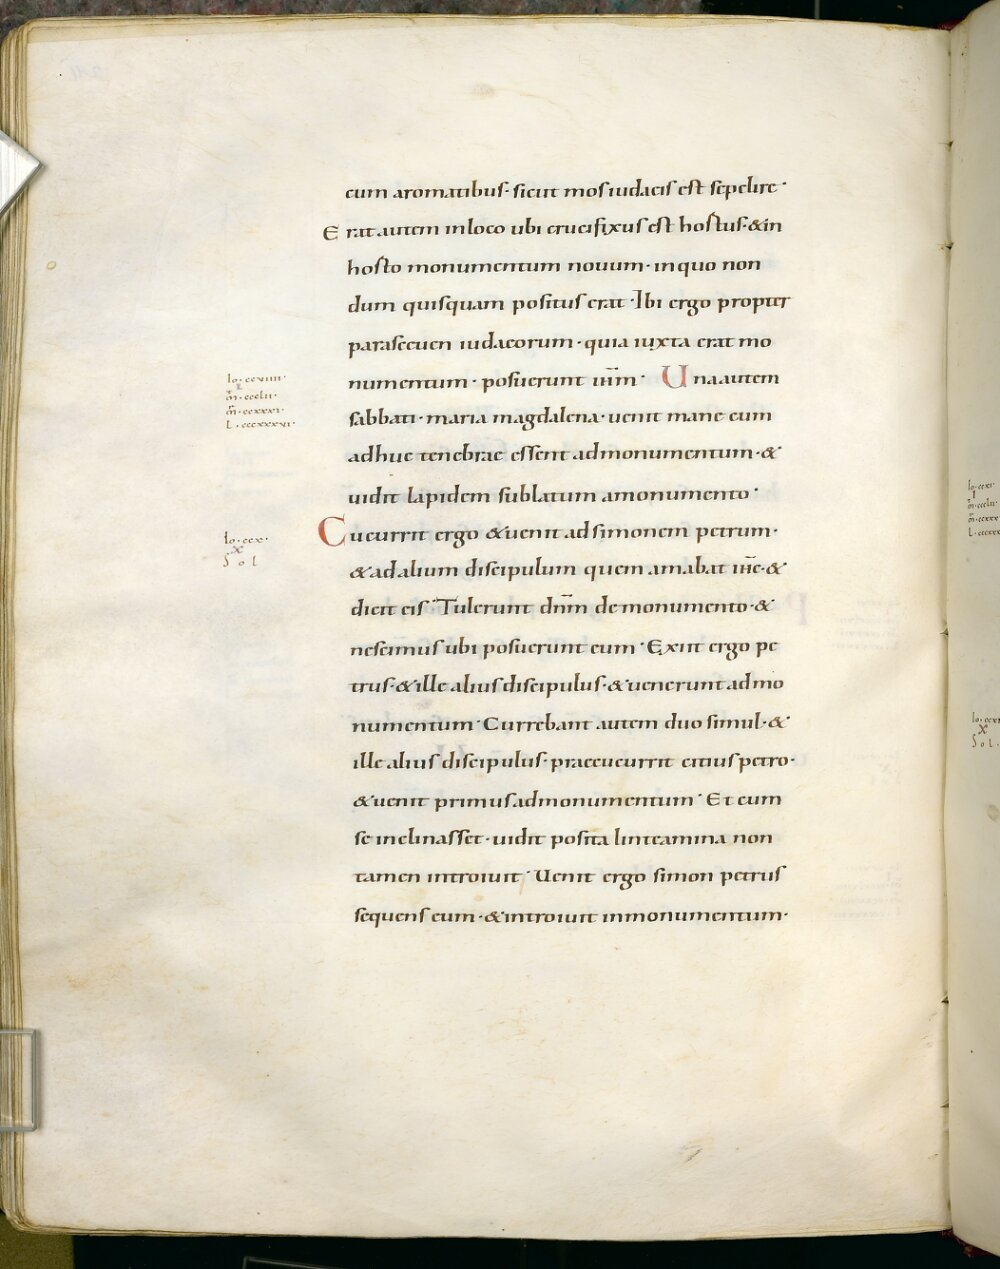 cum aromatibus· sicut mos iudaeis est sepelire·
Erat autem in loco ubi crucifixus est hostus· & in
hosto monumentum nouum· in quo non
dum quisquam positus erat· Ibi ergo propter
parasceuen iudaeorum· quia iuxta erat mo
numentum· posuerunt ihm̅· Una autem
sabbati· maria magdalena· uenit mane cum
adhuc tenebrae essent ad monumentum· &
uidit lapidem sublatum a monumento·
Cucurrit ergo & uenit ad simonem petrum·
& ad alium discipulum quem amabat ih̅c· &
dicit eis· Tulerunt dn̅m de monumento· &
nescimus ubi posuerunt eum· Exiit ergo pe
trus· & ille alius discipulus· & uenerunt ad mo
numentum· Currebant autem duo simul· &
ille alius discipulus· praecucurrit citius petro·
& uenit primus ad monumentum· Et cum
se inclinasset· uidit posita linteamina non
tamen introiuit· Uenit ergo simon petrus
sequens eum· & introiuit in monumentum·
Io·ccviiii·
I
m̅·ccclii·
m̅·ccxxxi·
L·cccxxxvi·
Io·ccx·
X
Sol